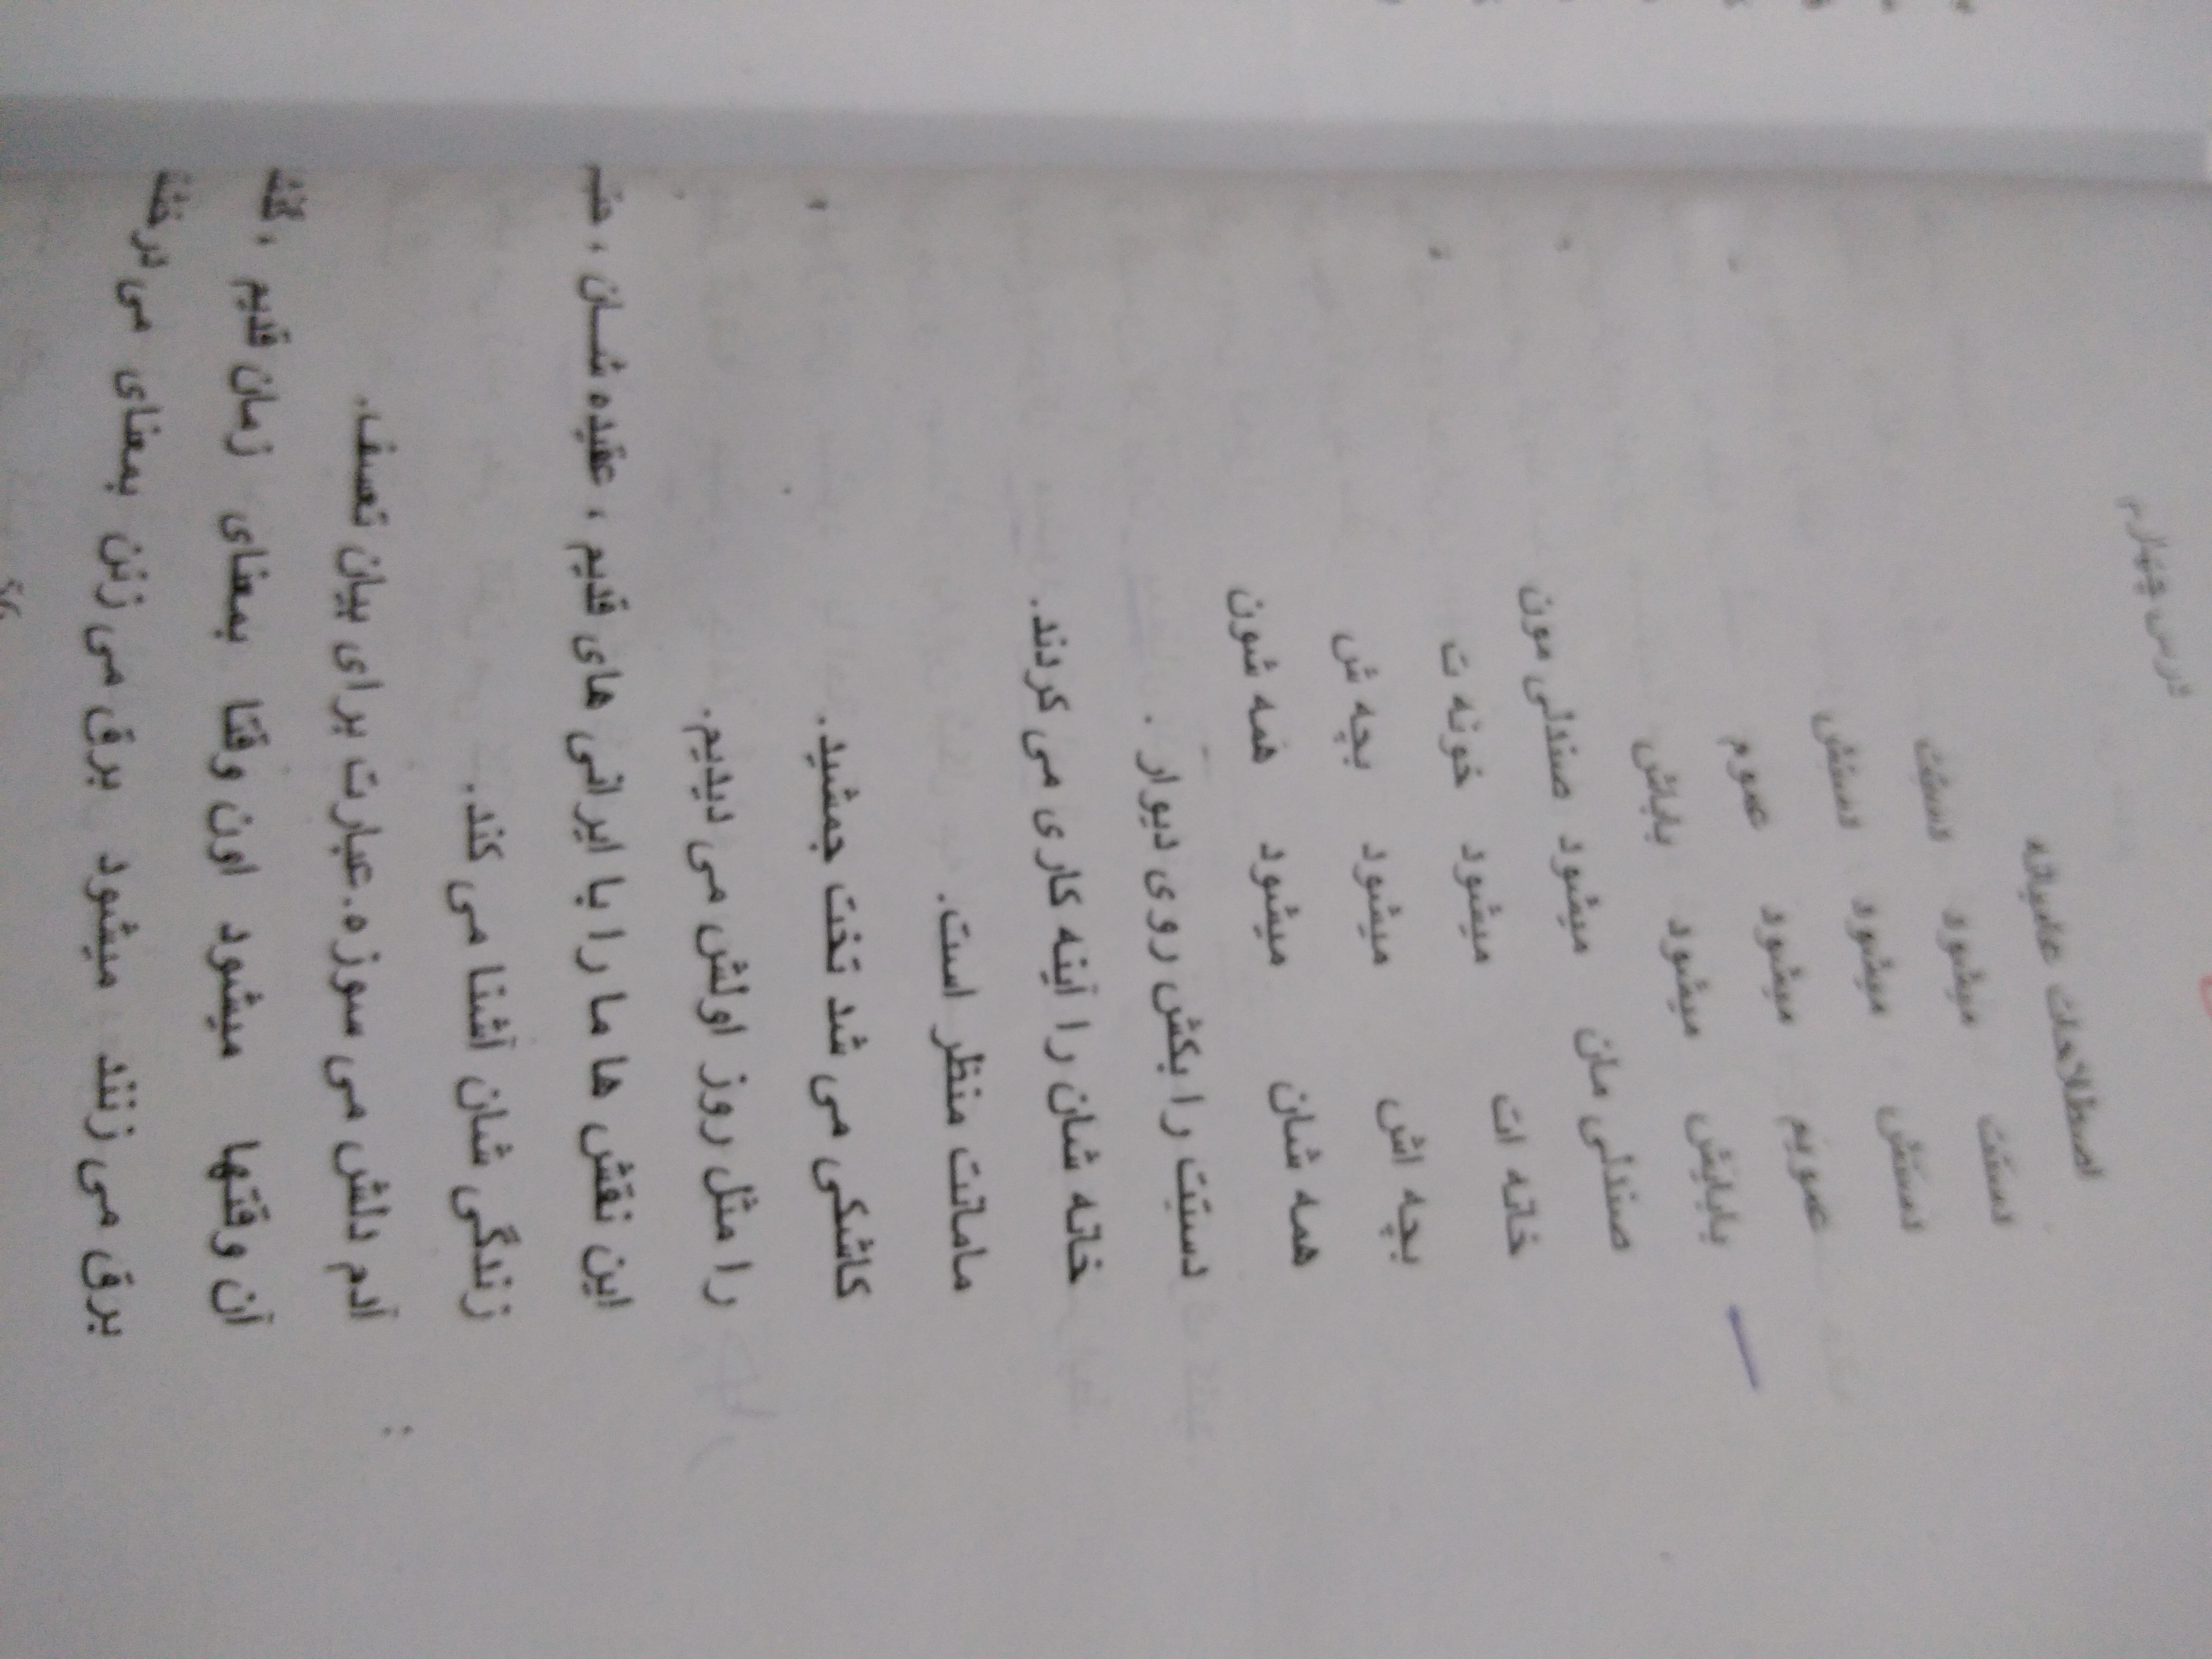 درس چهارم
اصطلاحات عامیانه
دستت میشود دستت
دستش میشود دستش
عمویم میشود عموم
بابایش میشود باباش
صندلی مان میشود صندلی مون
خانه ات میشود خونه ت
بچه اش میشود بچه ش
همه شان میشود همه شون
دستت را بکش روی دیوار .
خانه شان را آینه کاری می کردند.
مامانت منظر است.
کاشکی می شد تخت جمشید.
را مثل روز اولش می دیدیم.
این نقش ها ما را با ایرانی های قدیم ، عقیده شان ،
زندگی شان آشنا می کند.
آدم دلش می سوزه. عبارت برای بیان تعسف.
آن وقتها میشود اون وقتا بمعنای زمان قدیم ،
برق می زند میشود برق می زنن بمعنای می